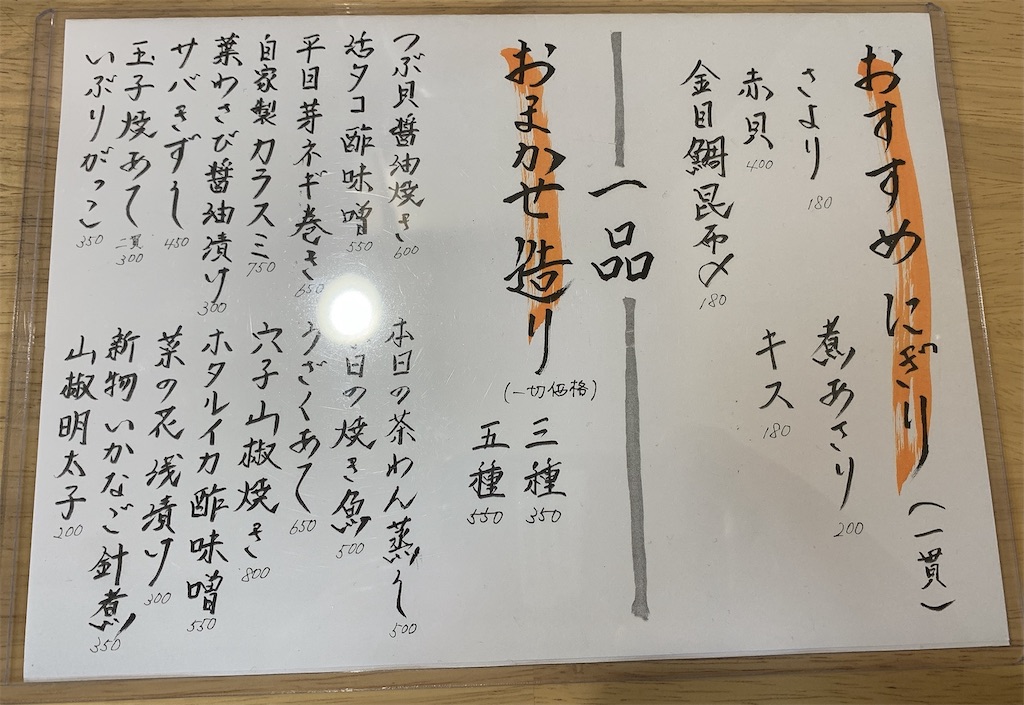 おすすめにぎり(一貫)
さより 180
煮あさり 200
赤貝 400
キス 180
金目鯛昆布〆 180
一品
おまかせ造り
(一切価格)
三種 350
五種 550
つぶ貝醬油焼き 600
活タコ酢味噌 550
平目芽ネギ巻き 650
自家製カラスミ 750
葉わさび醬油漬け 300
サバきずし 450
玉子焼あて 二貫 300
いぶりがっこ 350
本日の茶わん蒸し 500
日の焼き魚 500
うざくあて 650
穴子山椒焼き 800
ホタルイカ酢味噌 550
菜の花浅漬け 300
新物いかなご針煮 350
山椒明太子 200